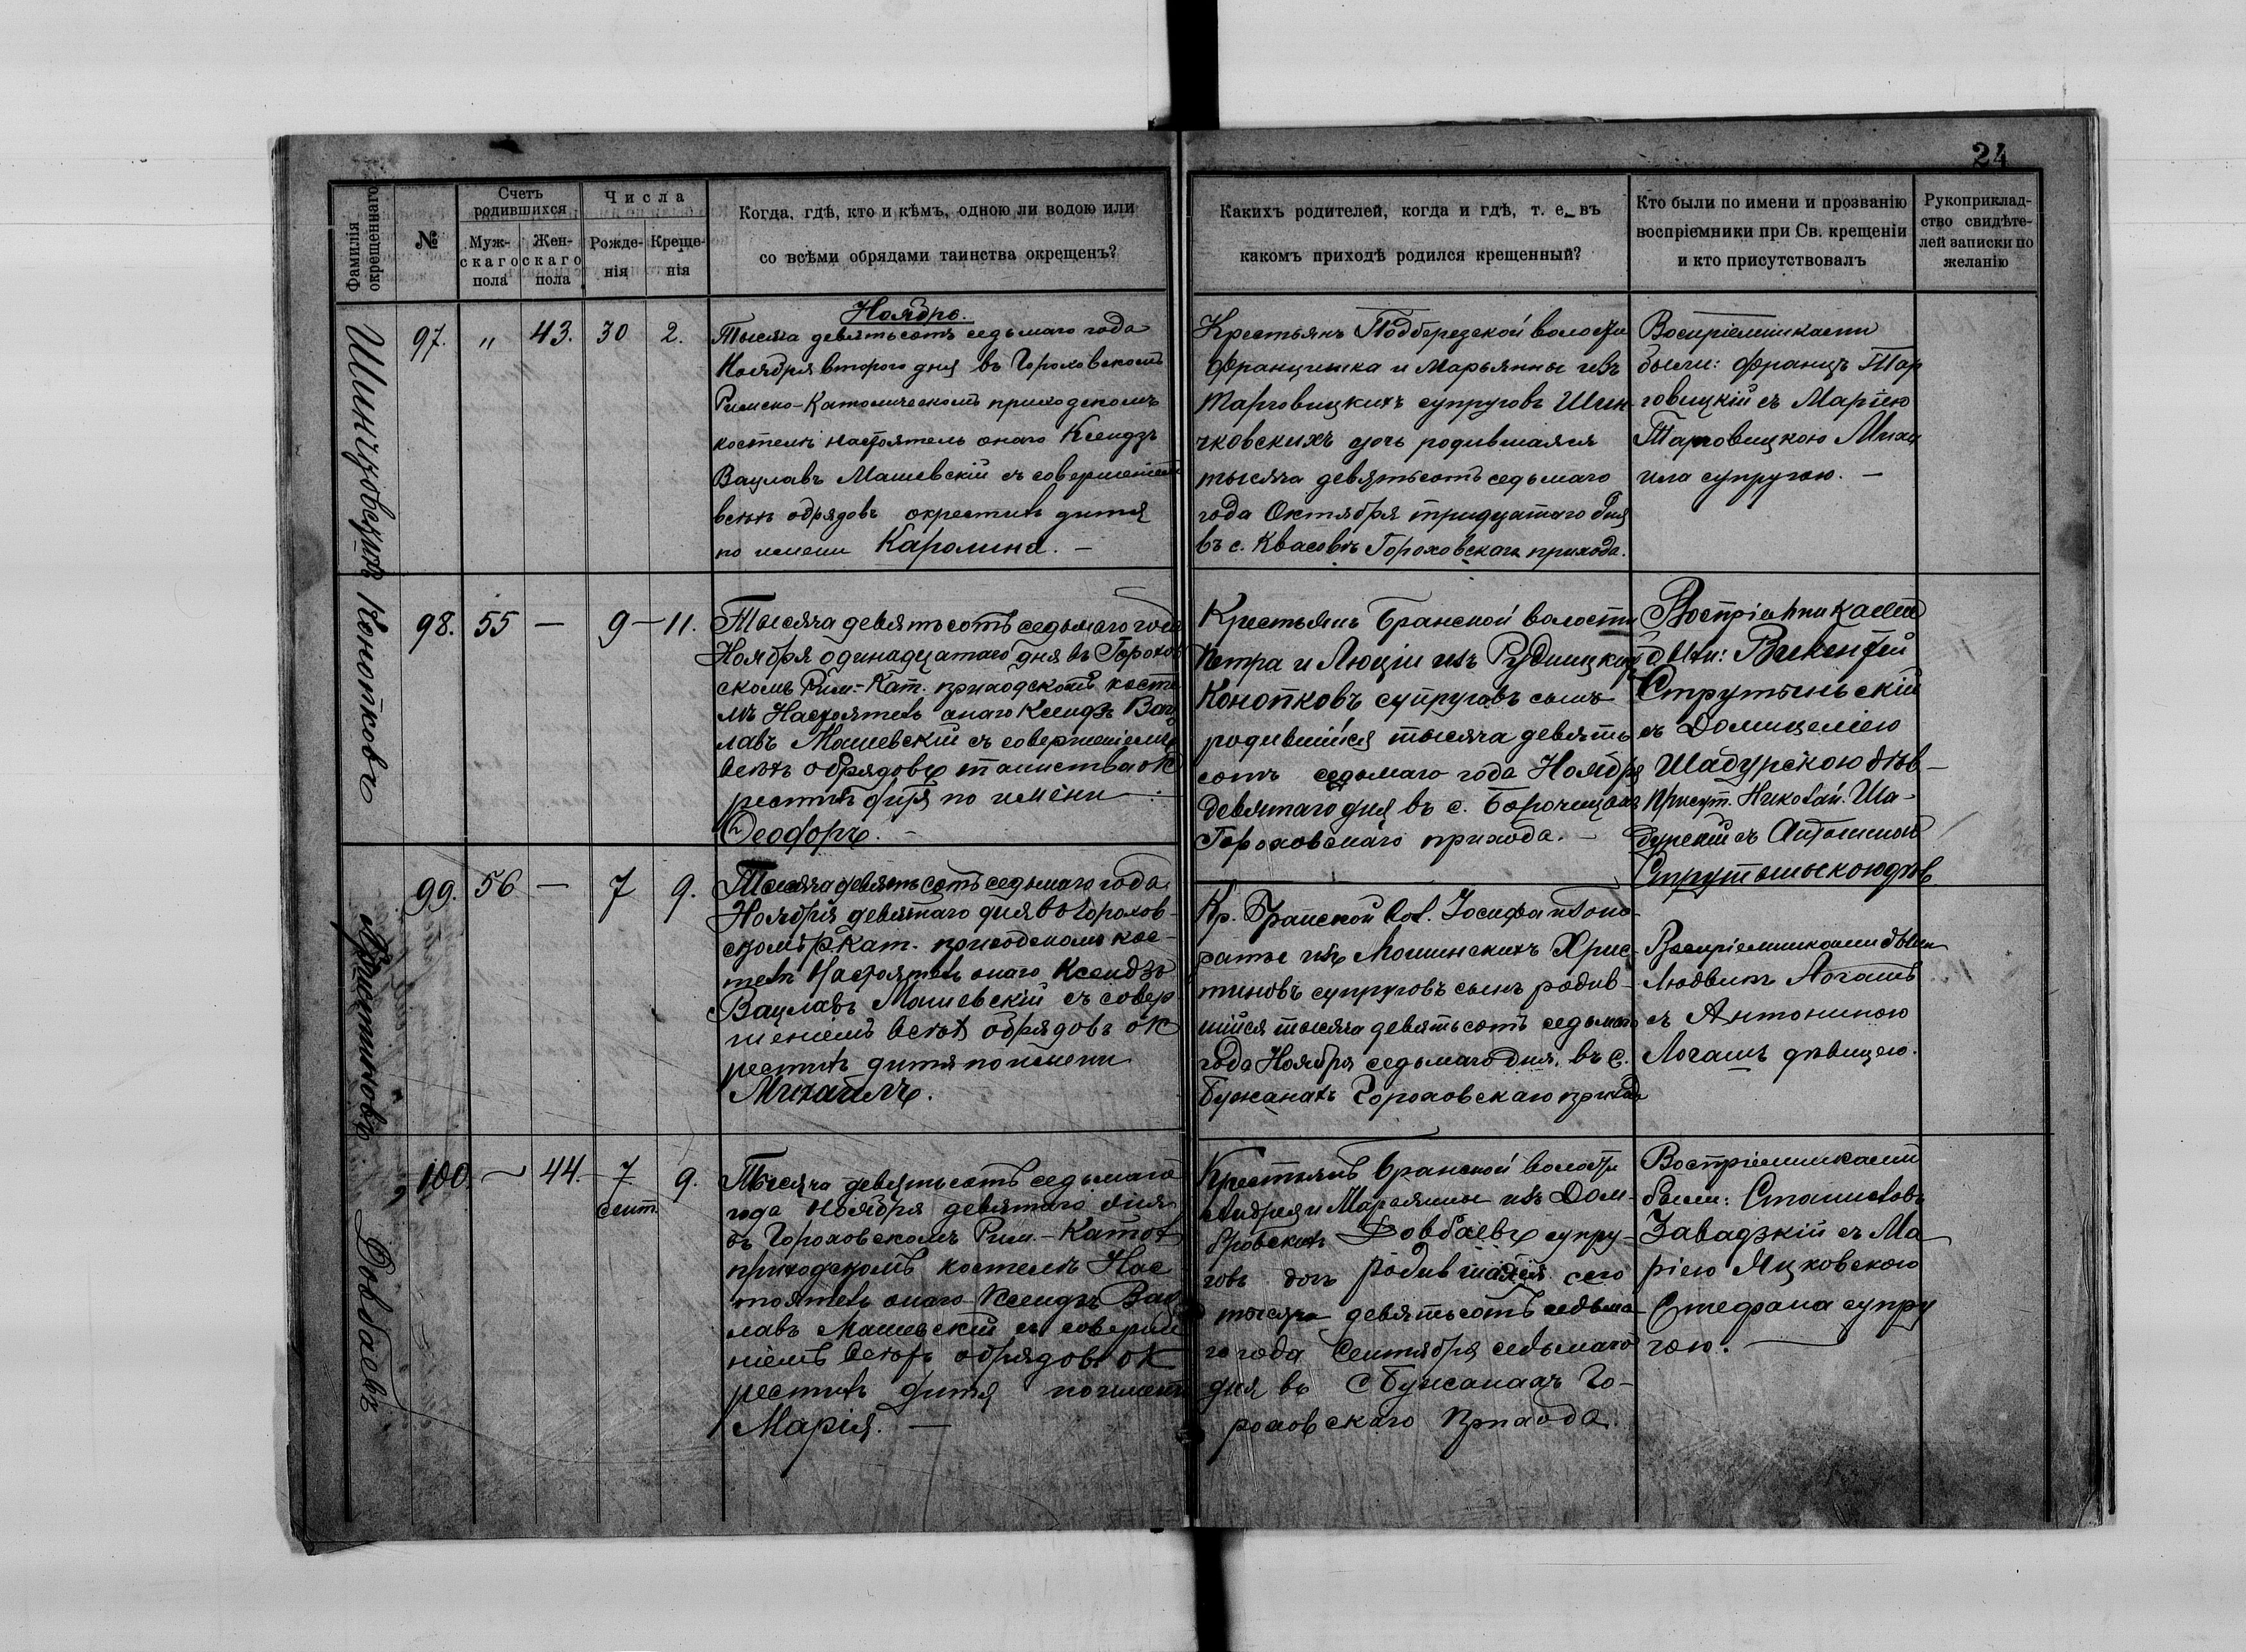 24
Фамилія окрещеннаго
№
Счетъ родившихся
Муж-скаго пола
Жен-скаго пола
Числа
Рожде-нія
Креще-нія
Когда, гдѣ, кто и кѣмъ, одною ли водою или
со всѣми обрядами таинства окрещенъ?
Какихъ родителей, когда и гдѣ, т. е. въ
какомъ приходѣ родился крещенный?
Кто были по имени и прозванію
воспріемники при Св. крещеніи
и кто присутствовалъ
Рукоприклад-
ство свидѣте-
лей записки по
желанію
97. " 43. 30 2.
Ноябрь.
Тысяча девятьсотъ седьмаго года
Ноября втораго дня въ Гороховскомъ
Римско-Католическомъ приходскомъ
костелѣ Настоятель онаго Ксендзъ
Вацлавъ Машевскій съ совершеніемъ
всѣхъ обрядовъ окрестилъ дитя
по имени Каролина. —
Крестьянъ Подберезской волости
Францишка и Марьянны изъ
Тарговицкихъ супруговъ Шин-
чковскихъ дочь родившаяся
тысяча девятьсотъ седьмаго
года Октября тридцатаго дня
въ с. Квасовѣ Гороховскаго прихода.
Воспріемниками
были: Францъ Тар
говицкій съ Маріею
Тарговицкою Миха
ила супругою. —
Конопковъ
98. 55 — 9 — 11.
Тысяча девятьсотъ седьмаго года
Ноября одинадцатаго дня въ Горохов
скомъ Рим.-Кат. приходскомъ косте
лѣ Настоятель онаго Ксендзъ Вац
лавъ Машевскій съ совершеніемъ
всѣхъ обрядовъ таинства ок
рестилъ дитя по имени
Ѳеодоръ. —
Крестьянъ Бранской волости
Петра и Люціи изъ Рудницкихъ
Конопковъ супруговъ сынъ
родившійся тысяча девять
сотъ седьмаго года Ноября
девятаго дня въ с. Борочицахъ
Гороховскаго прихода. —
Воспріемниками
были: Викентій
Струтыньскій
съ Домицеліею
Шадурскою дѣв —
Присут. Николай Ша-
дурскій съ Антониной
Струтыньскою дѣв
Христиновъ
99. 56 — 7 9.
Тысяча девятьсотъ седьмаго года
Ноября девятаго дня въ Горохов-
скомъ Р Кат. приходскомъ кос-
телѣ Настоятель онаго Ксендзъ
Вацлавъ Машевскій съ совер
шеніемъ всѣхъ обрядовъ ок
рестилъ дитя по имени
Михаилъ.
Кр. Бранской вол. Іосифа и Гоно-
раты изъ Мошинскихъ Хрис-
тиновъ супруговъ сынъ родив-
шійся тысяча девятьсотъ седьмаго
года Ноября седьмаго дня въ с.
Бужанахъ Гороховскаго прихода
Воспріемниками были
Людвикъ Логашъ
съ Антониною
Логашъ дѣвицею.
Довбаевъ
100. — 44. 7 сент. 9.
Тысяча девятьсотъ седьмаго
года Ноября девятаго дня
въ Гороховскомъ Рим.-Катол
приходскомъ костелѣ Нас
тоятель онаго Ксендзъ Вац
лавъ Машевскій съ соверше
ніемъ всѣхъ обрядовъ ок
рестилъ дитя по имени
Марія. —
Крестьянъ Бранской волости
Андрея и Марьянны изъ Дом-
бровскихъ Довбаевъ супру-
говъ дочь родившаяся сего
тысяча девятьсотъ седьма
го года Сентября седьмаго
дня въ с Бужанахъ Го-
роховскаго прихода.
Воспріемниками
были: Станиславъ
Завадзкій съ Ма
ріею Яцковскою
Стефана супру
гою. —